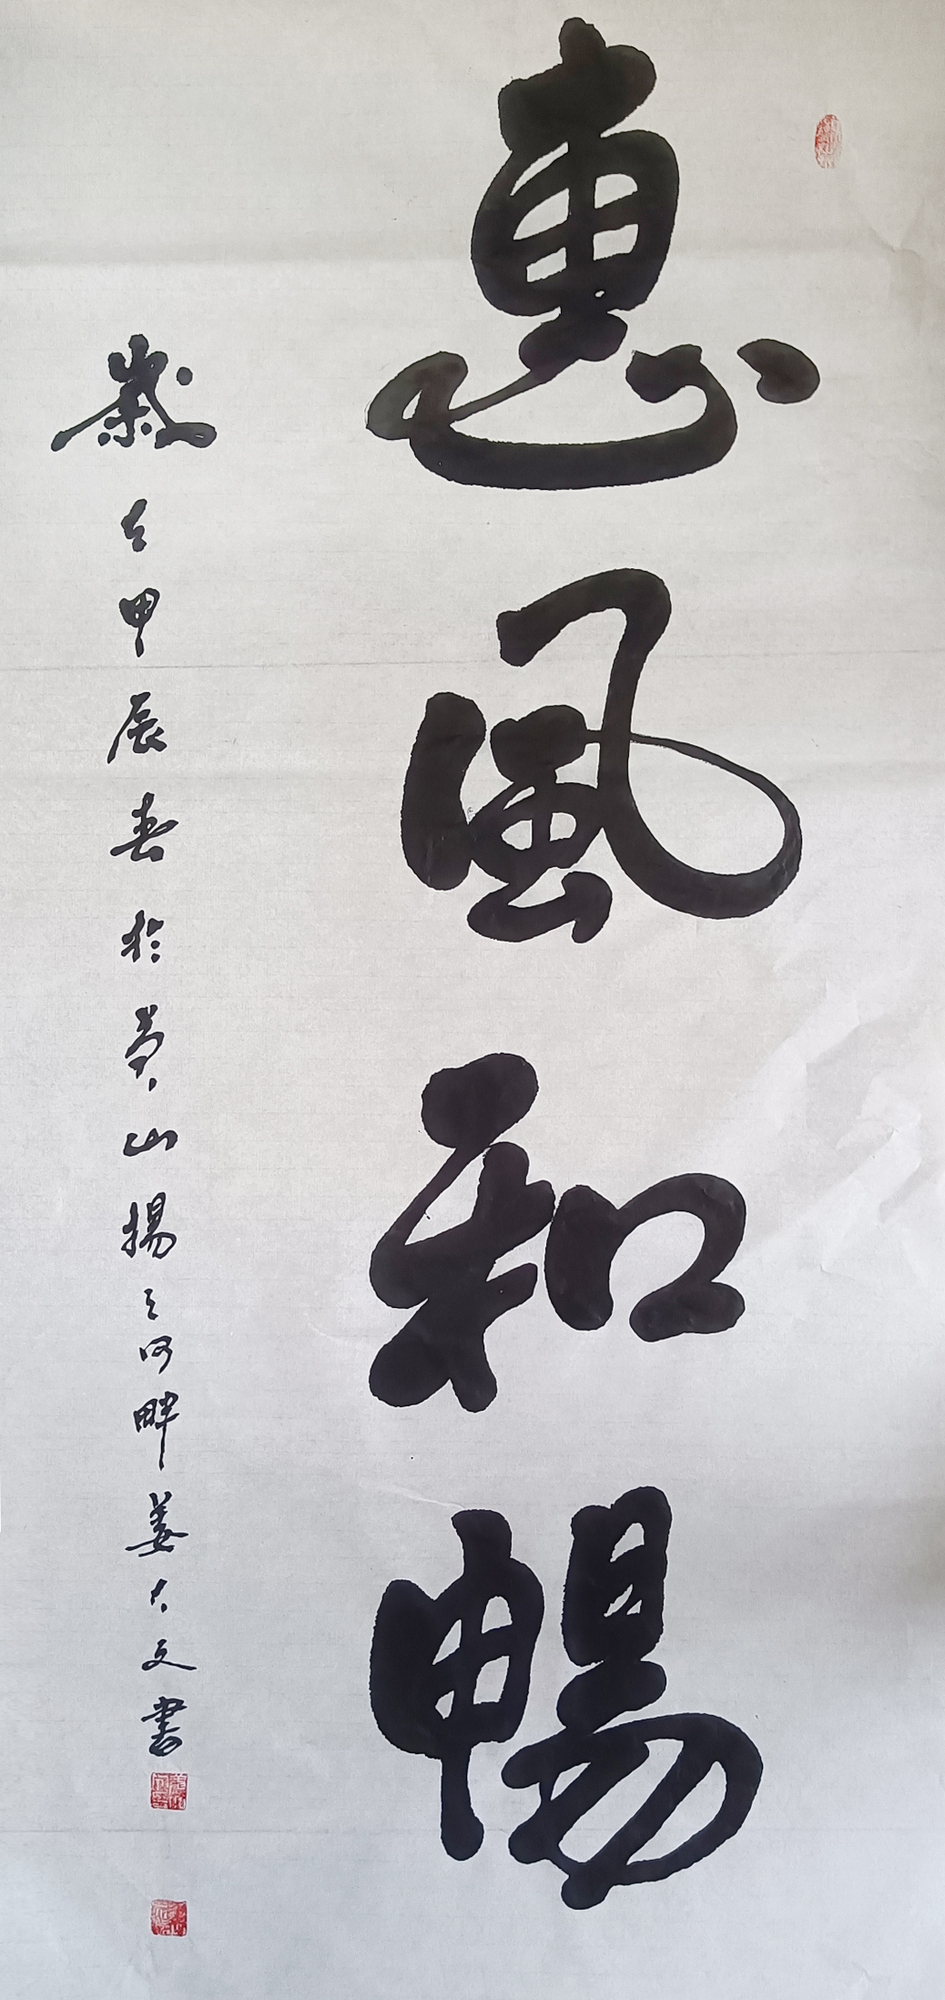 惠風和暢
歲在甲辰春於黄山揚之河畔姜大文書